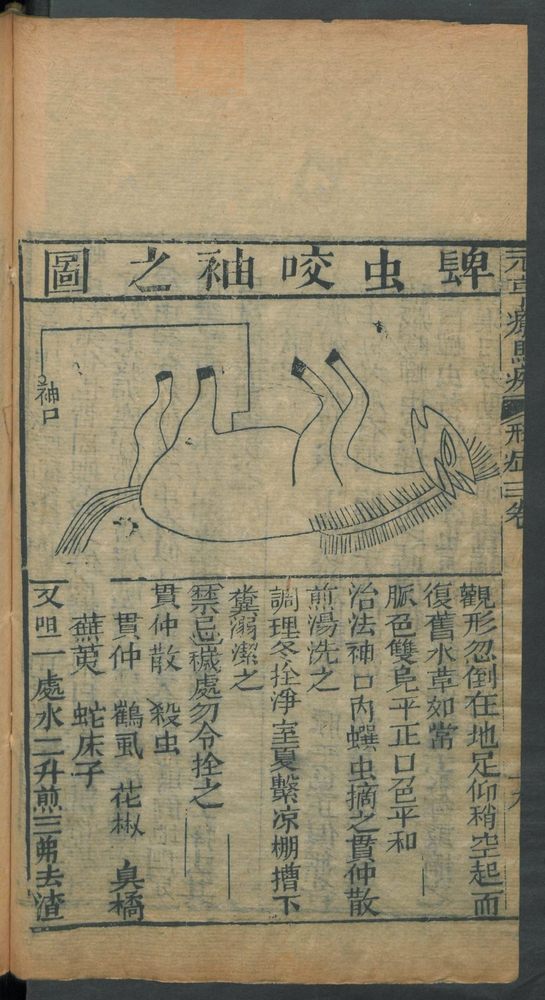 虫咬袖之圖
神口
觀形忽倒在地足仰稍空起而
復舊水草如常
脈色雙鳧平正口色平和
治法神口內虫摘之貫仲散
煎湯洗之
調理冬拴淨室夏繫凉棚槽下
糞溺潔之
禁忌穢處勿令拴之
貫仲散 殺虫
貫仲 鶴虱 花椒 臭橘
蕪荑 蛇床子
咀一處水二升煎三去渣
形症三卷